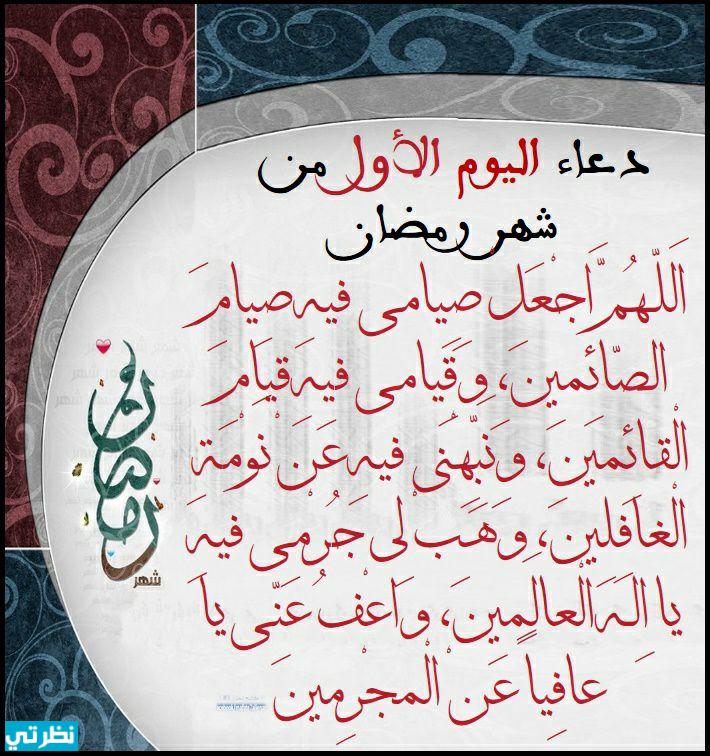 دعاء اليوم الأول من
شهر رمضان
اَللّهُمَّ اجْعَلْ صيامى فيهِ صيامَ
الصّائمينَ، وَقيامى فيهِ قيامَ
الْقائمينَ، وَنَبّهْنى فيهِ عَنْ نَوْمَة
الْغافلينَ، وَهَبْ لى جُرْمى فيهِ
يا الهَ الْعالمينَ، وَاعْفُ عَنّى يا
عافِياً عَنِ الْمجْرِمينَ
رمضان
شهر
نظرتي